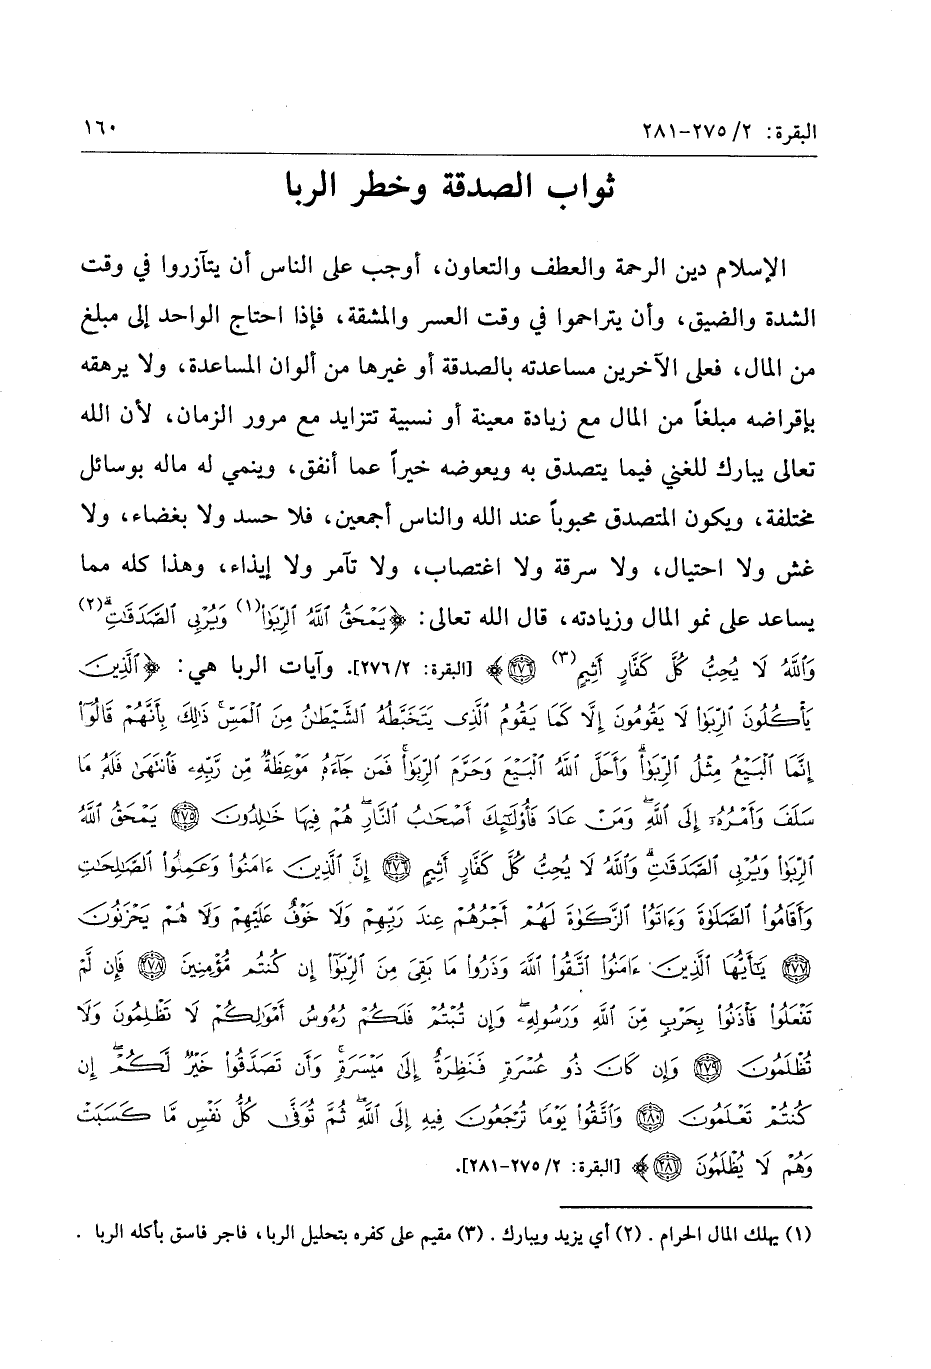 البقرة: ٢/ ٢٧٥-٢٨١
١٦٠
ثواب الصدقة وخطر الربا
الإسلام دين الرحمة والعطف والتعاون، أوجب على الناس أن يتآزروا في وقت
الشدة والضيق، وأن يتراحموا في وقت العسر والمشقة، فإذا احتاج الواحد إلى مبلغ
من المال، فعلى الآخرين مساعدته بالصدقة أو غيرها من ألوان المساعدة، ولا يرهقه
بإقراضه مبلغاً من المال مع زيادة معينة أو نسبية تتزايد مع مرور الزمان، لأن الله
تعالى يبارك للغني فيما يتصدق به ويعوضه خيراً عما أنفق، وينمي له ماله بوسائل
مختلفة، ويكون المتصدق محبوباً عند الله والناس أجمعين، فلا حسد ولا بغضاء، ولا
غش ولا احتيال، ولا سرقة ولا اغتصاب، ولا تآمر ولا إيذاء، وهذا كله مما
يساعد على نمو المال وزيادته، قال الله تعالى: ﴿يَمۡحَقُ ٱللَّهُ ٱلرِّبَوٰاْ(١) وَيُرۡبِي ٱلصَّدَقَٰتِۗ(٢)
وَٱللَّهُ لَا يُحِبُّ كُلَّ كَفَّارٍ أَثِيمٍ(٣) ٢٧٦﴾ [البقرة: ٢/ ٢٧٦]. وآيات الربا هي: ﴿ٱلَّذِينَ
يَأۡكُلُونَ ٱلرِّبَوٰاْ لَا يَقُومُونَ إِلَّا كَمَا يَقُومُ ٱلَّذِي يَتَخَبَّطُهُ ٱلشَّيۡطَٰنُ مِنَ ٱلۡمَسِّۚ ذَٰلِكَ بِأَنَّهُمۡ قَالُوٓاْ
إِنَّمَا ٱلۡبَيۡعُ مِثۡلُ ٱلرِّبَوٰاْۗ وَأَحَلَّ ٱللَّهُ ٱلۡبَيۡعَ وَحَرَّمَ ٱلرِّبَوٰاْۚ فَمَن جَآءَهُۥ مَوۡعِظَةٌ مِّن رَّبِّهِۦ فَٱنتَهَىٰ فَلَهُۥ مَا
سَلَفَ وَأَمۡرُهُۥٓ إِلَى ٱللَّهِۖ وَمَنۡ عَادَ فَأُوْلَٰٓئِكَ أَصۡحَٰبُ ٱلنَّارِۖ هُمۡ فِيهَا خَٰلِدُونَ ٢٧٥ يَمۡحَقُ ٱللَّهُ
ٱلرِّبَوٰاْ وَيُرۡبِي ٱلصَّدَقَٰتِۗ وَٱللَّهُ لَا يُحِبُّ كُلَّ كَفَّارٍ أَثِيمٍ ٢٧٦ إِنَّ ٱلَّذِينَ ءَامَنُواْ وَعَمِلُواْ ٱلصَّٰلِحَٰتِ
وَأَقَامُواْ ٱلصَّلَوٰةَ وَءَاتَوُاْ ٱلزَّكَوٰةَ لَهُمۡ أَجۡرُهُمۡ عِندَ رَبِّهِمۡ وَلَا خَوۡفٌ عَلَيۡهِمۡ وَلَا هُمۡ يَحۡزَنُونَ
٢٧٧ يَٰٓأَيُّهَا ٱلَّذِينَ ءَامَنُواْ ٱتَّقُواْ ٱللَّهَ وَذَرُواْ مَا بَقِيَ مِنَ ٱلرِّبَوٰٓاْ إِن كُنتُم مُّؤۡمِنِينَ ٢٧٨ فَإِن لَّمۡ
تَفۡعَلُواْ فَأۡذَنُواْ بِحَرۡبٍ مِّنَ ٱللَّهِ وَرَسُولِهِۦۖ وَإِن تُبۡتُمۡ فَلَكُمۡ رُءُوسُ أَمۡوَٰلِكُمۡ لَا تَظۡلِمُونَ وَلَا
تُظۡلَمُونَ ٢٧٩ وَإِن كَانَ ذُو عُسۡرَةٍ فَنَظِرَةٌ إِلَىٰ مَيۡسَرَةٍۚ وَأَن تَصَدَّقُواْ خَيۡرٌ لَّكُمۡۖ إِن
كُنتُمۡ تَعۡلَمُونَ ٢٨٠ وَٱتَّقُواْ يَوۡمًا تُرۡجَعُونَ فِيهِ إِلَى ٱللَّهِۖ ثُمَّ تُوَفَّىٰ كُلُّ نَفۡسٍ مَّا كَسَبَتۡ
وَهُمۡ لَا يُظۡلَمُونَ ٢٨١﴾ [البقرة: ٢/ ٢٧٥-٢٨١].
(١) يهلك المال الحرام. (٢) أي يزيد ويبارك. (٣) مقيم على كفره بتحليل الربا، فاجر فاسق بأكله الربا.